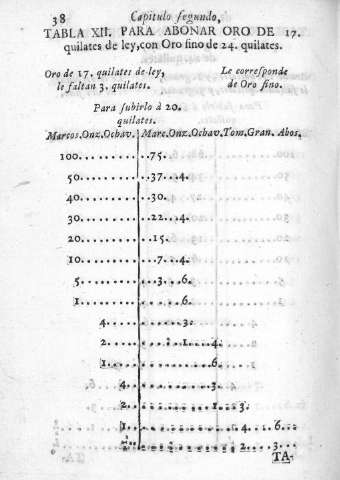 38 Capitulo segundo,
TABLA XII. PARA ABONAR ORO DE 17.
quilates de ley, con Oro fino de 24. quilates.
Oro de 17. quilates de ley, Le corresponde
le faltan 3. quilates. de Oro fino.
Para subirlo à 20.
quilates.
Marcos. Onz. Ochav. Marc. Onz. Ochav. Tom. Gran. Abos.
100. 75.
50. 37. 4.
40. 30.
30. 22. 4.
20. 15.
10. 7. 4.
5. 3. 6.
1. 6.
4. 3.
2. 1. 4.
1. 6.
4. 3.
2. 1. 3.
1. 4. 1. 6.
2. 3.
TA-